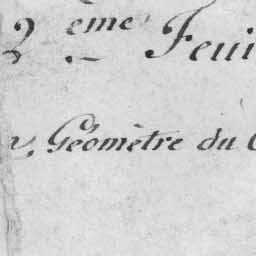 2.ème Feui
, Géomètre du C